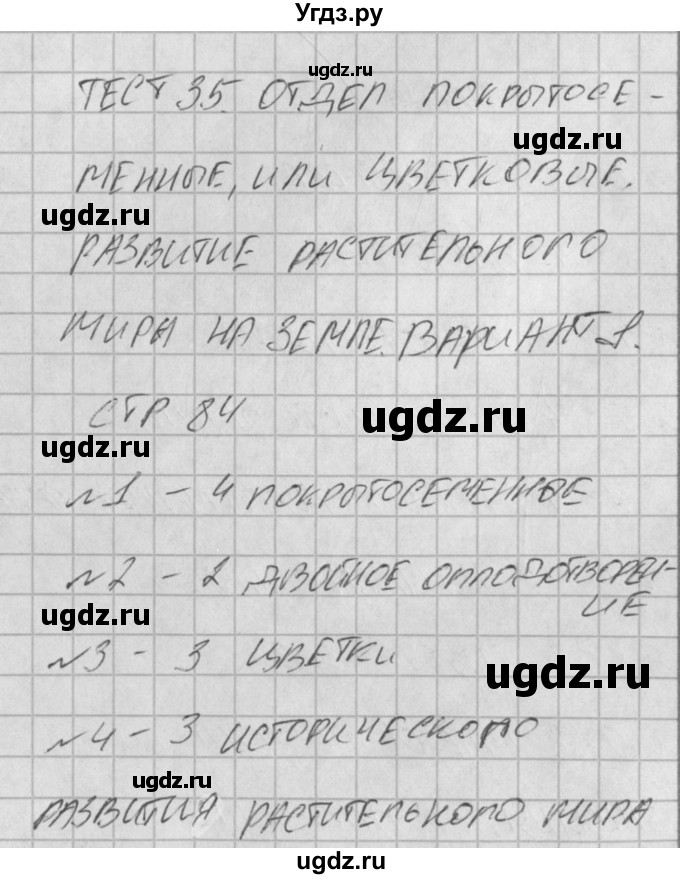 Угдз.ру
ugdz.ru
ТЕСТ 35. ОТДЕЛ ПОКРЫТОСЕ-
ugdz.ru
МЕННЫЕ, ИЛИ ЦВЕТКОВЫЕ.
ugdz.ru
РАЗВИТИЕ РАСТИТЕЛЬНОГО
МИРА НА ЗЕМЛЕ. ВАРИАНТ 1.
СТР 84
ugdz.ru
ugdz.ru
№1 - 4 ПОКРЫТОСЕМЕННЫЕ
№2 - 2 ДВОЙНОЕ ОПЛОДОТВОРЕН-
ИЕ
ugdz.ru
№3 - 3 ЦВЕТКИ
ugdz.ru
№4 - 3 ИСТОРИЧЕСКОГО
ugdz.ru
РАЗВИТИЯ РАСТИТЕЛЬНОГО МИРА
ugdz.ru